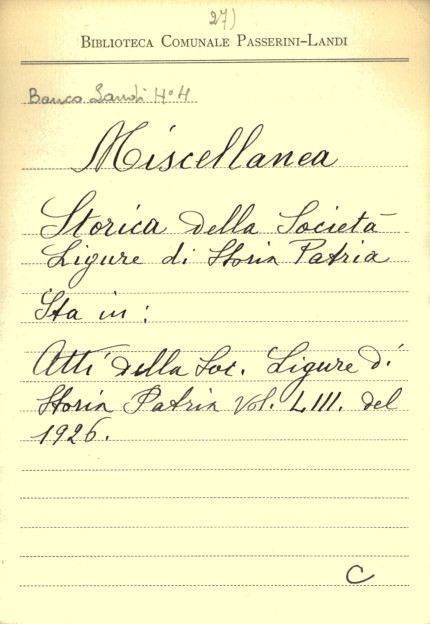 27)
BIBLIOTECA COMUNALE PASSERINI-LANDI
Banco Landi N° 4
Miscellanea
Storica della Società
Ligure di Storia Patria
Sta in:
Atti della Soc. Ligure di
Storia Patria Vol. LIII. del
1926.
C